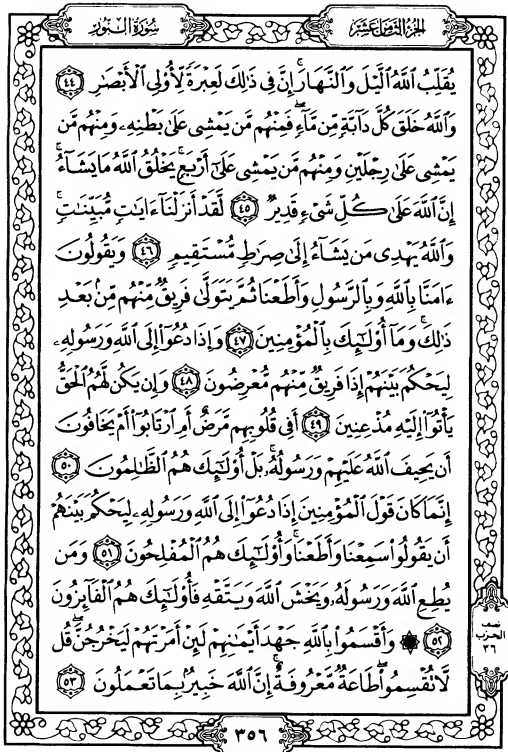 سُورَةُ النُّورِ
الجُزْءُ الثَّامِنَ عَشَرَ
يُقَلِّبُ ٱللَّهُ ٱلَّيْلَ وَٱلنَّهَارَۚ إِنَّ فِى ذَٰلِكَ لَعِبْرَةً لِّأُو۟لِى ٱلْأَبْصَٰرِ ٤٤
وَٱللَّهُ خَلَقَ كُلَّ دَآبَّةٍ مِّن مَّآءٍۖ فَمِنْهُم مَّن يَمْشِى عَلَىٰ بَطْنِهِۦ وَمِنْهُم مَّن
يَمْشِى عَلَىٰ رِجْلَيْنِ وَمِنْهُم مَّن يَمْشِى عَلَىٰٓ أَرْبَعٍۚ يَخْلُقُ ٱللَّهُ مَا يَشَآءُۚ
إِنَّ ٱللَّهَ عَلَىٰ كُلِّ شَىْءٍ قَدِيرٌ ٤٥ لَّقَدْ أَنزَلْنَآ ءَايَٰتٍ مُّبَيِّنَٰتٍۚ
وَٱللَّهُ يَهْدِى مَن يَشَآءُ إِلَىٰ صِرَٰطٍ مُّسْتَقِيمٍ ٤٦ وَيَقُولُونَ
ءَامَنَّا بِٱللَّهِ وَبِٱلرَّسُولِ وَأَطَعْنَا ثُمَّ يَتَوَلَّىٰ فَرِيقٌ مِّنْهُم مِّنۢ بَعْدِ
ذَٰلِكَۚ وَمَآ أُو۟لَٰٓئِكَ بِٱلْمُؤْمِنِينَ ٤٧ وَإِذَا دُعُوٓا۟ إِلَى ٱللَّهِ وَرَسُولِهِۦ
لِيَحْكُمَ بَيْنَهُمْ إِذَا فَرِيقٌ مِّنْهُم مُّعْرِضُونَ ٤٨ وَإِن يَكُن لَّهُمُ ٱلْحَقُّ
يَأْتُوٓا۟ إِلَيْهِ مُذْعِنِينَ ٤٩ أَفِى قُلُوبِهِم مَّرَضٌ أَمِ ٱرْتَابُوٓا۟ أَمْ يَخَافُونَ
أَن يَحِيفَ ٱللَّهُ عَلَيْهِمْ وَرَسُولُهُۥۚ بَلْ أُو۟لَٰٓئِكَ هُمُ ٱلظَّٰلِمُونَ ٥٠
إِنَّمَا كَانَ قَوْلَ ٱلْمُؤْمِنِينَ إِذَا دُعُوٓا۟ إِلَى ٱللَّهِ وَرَسُولِهِۦ لِيَحْكُمَ بَيْنَهُمْ
أَن يَقُولُوا۟ سَمِعْنَا وَأَطَعْنَاۚ وَأُو۟لَٰٓئِكَ هُمُ ٱلْمُفْلِحُونَ ٥١ وَمَن
يُطِعِ ٱللَّهَ وَرَسُولَهُۥ وَيَخْشَ ٱللَّهَ وَيَتَّقْهِ فَأُو۟لَٰٓئِكَ هُمُ ٱلْفَآئِزُونَ
٥٢ ۞ وَأَقْسَمُوا۟ بِٱللَّهِ جَهْدَ أَيْمَٰنِهِمْ لَئِنْ أَمَرْتَهُمْ لَيَخْرُجُنَّۖ قُل
لَّا تُقْسِمُوا۟ۖ طَاعَةٌ مَّعْرُوفَةٌۚ إِنَّ ٱللَّهَ خَبِيرٌۢ بِمَا تَعْمَلُونَ ٥٣
نصف
الحزب
٣٦
٣٥٦